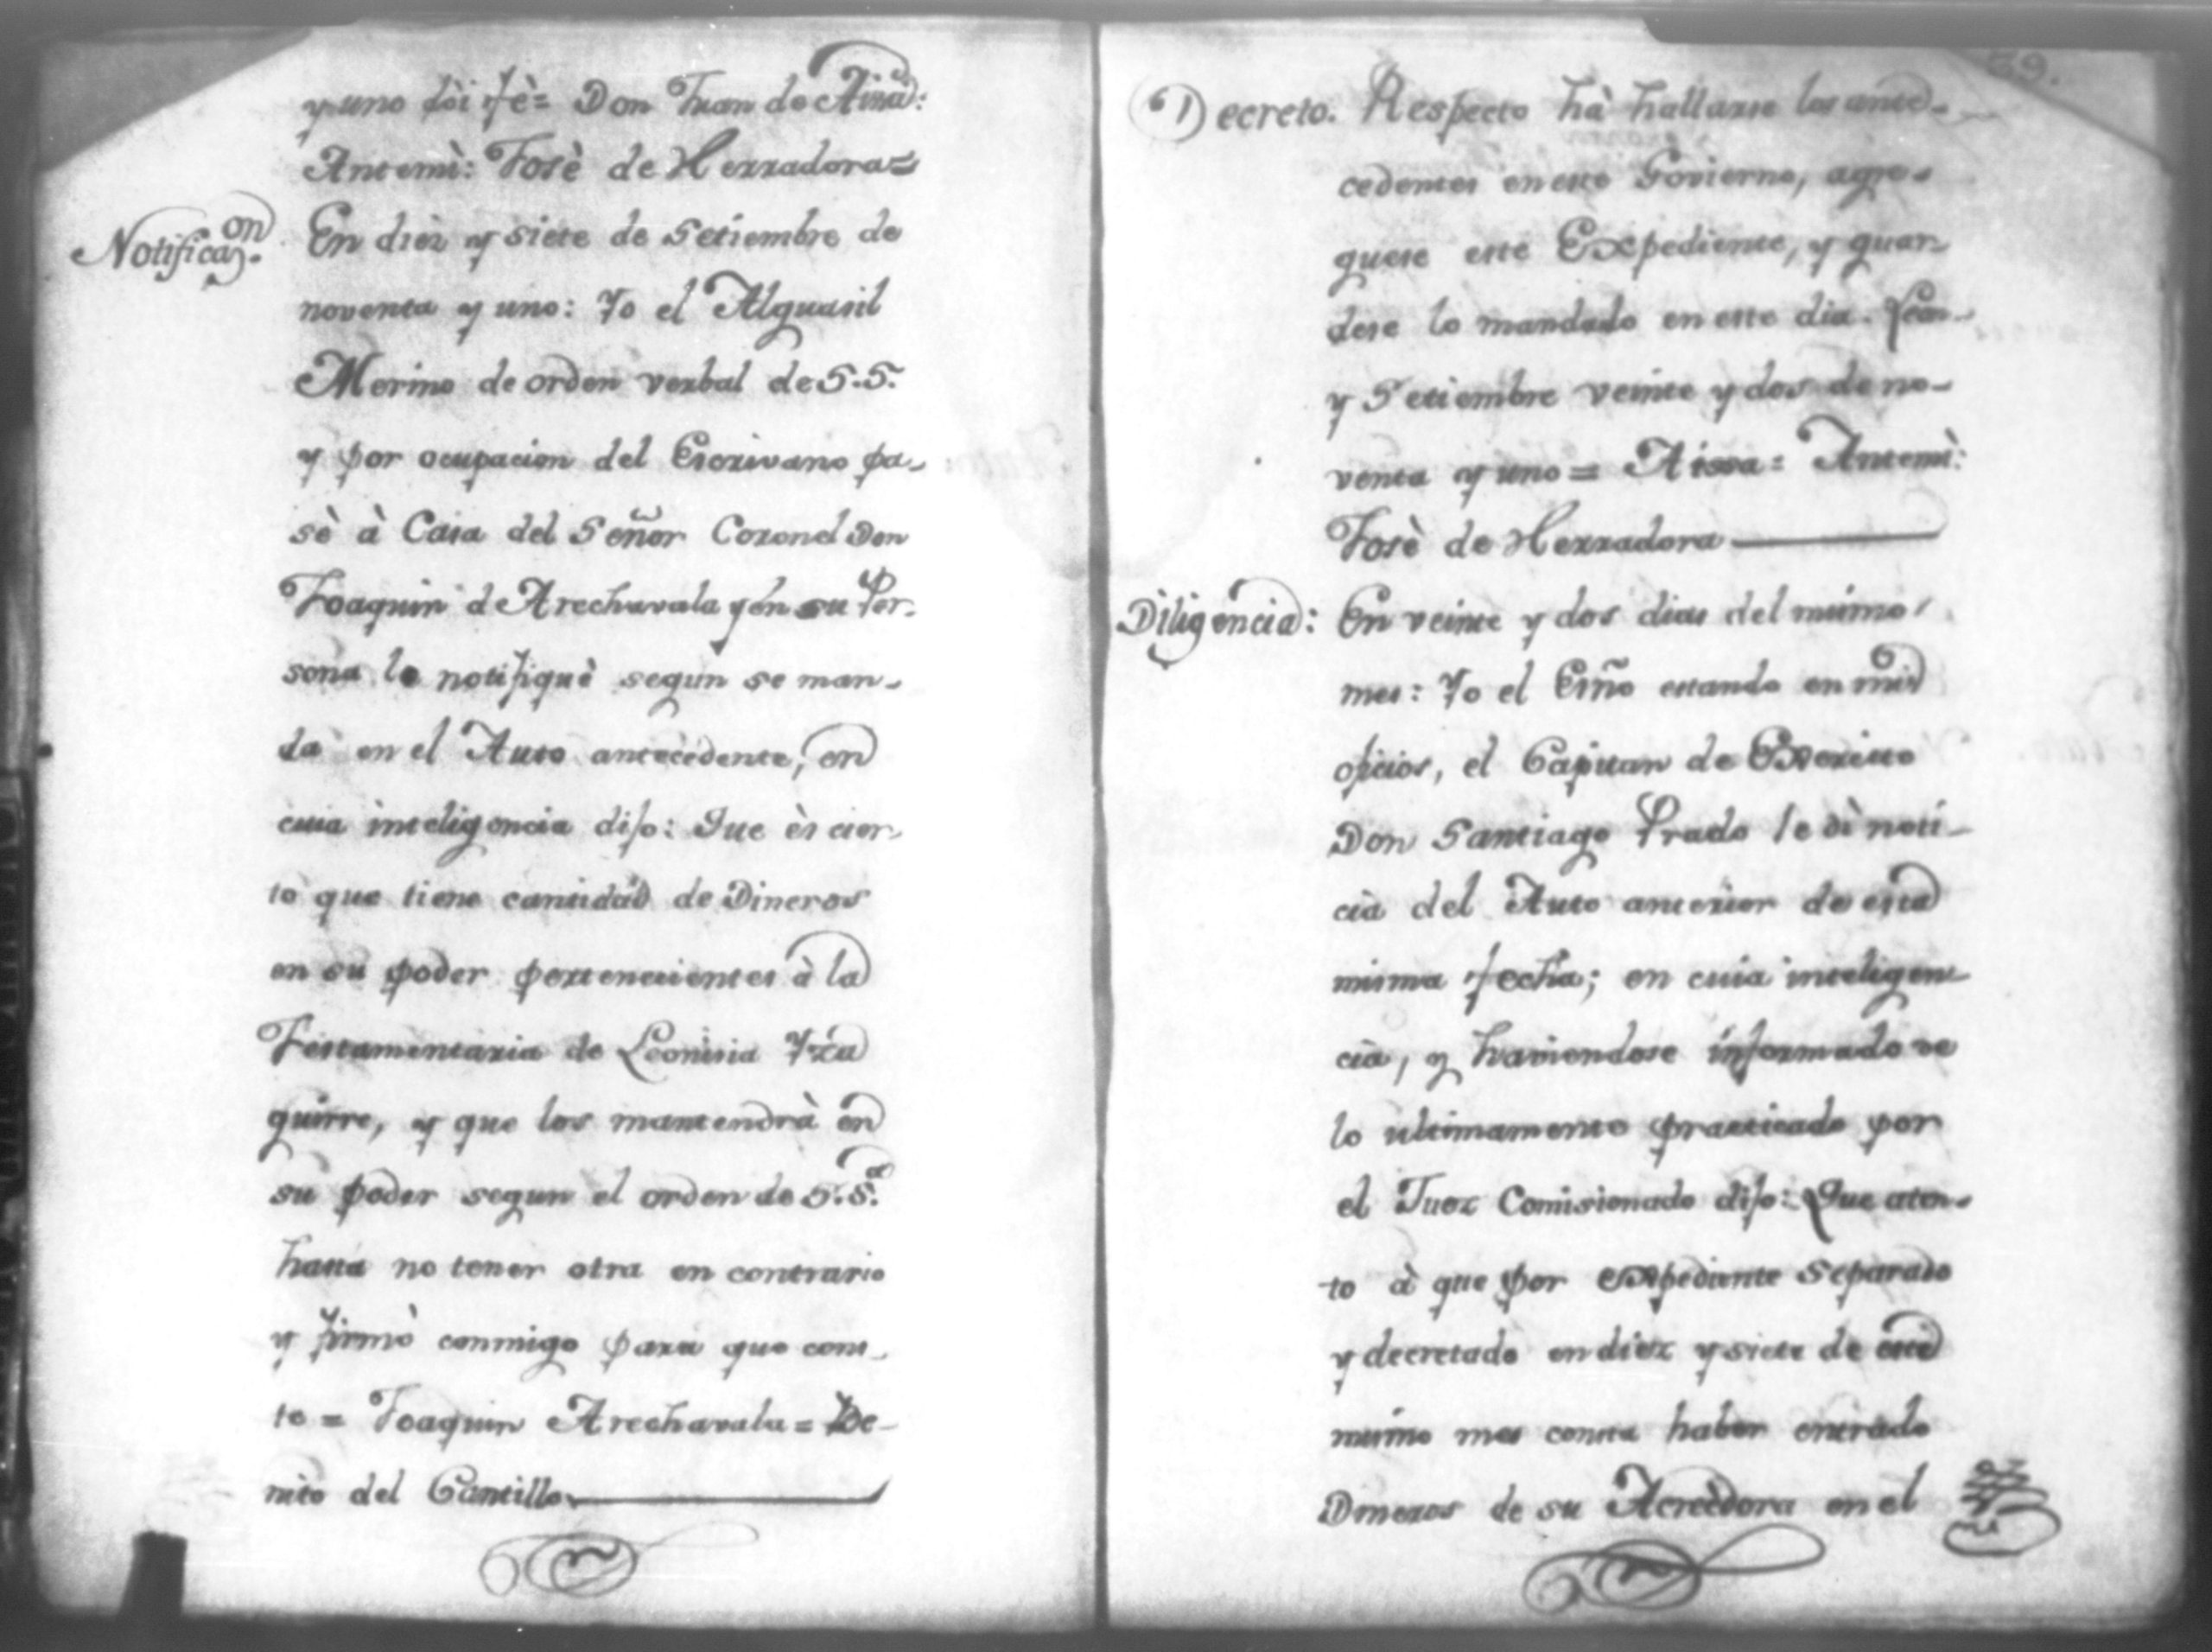 y uno doi fè= Don Juan de Aisa:
Antemì: Josè de Herradora=
Notificaz.on En diez y siete de Setiembre de
noventa y uno: Yo el Alguasil
Merino de orden verbal de S.S.
y por ocupacion del Escrivano pa-
sè à Casa del Señor Coronel Don
Joaquin de Arechavala y en su Per-
sona le notifiquè segun se man-
da en el Auto antecedente, en
cuia inteligencia dijo: Que ès cier-
to que tiene cantidad de Dineros
en su poder pertenecientes à la
Testamentaria de Leonisia Yza
guirre, y que los mantendrà en
su poder segun el orden de S.S.a
hasta no tener otra en contrario
y firmò conmigo para que cons-
te = Joaquin Arechavala = Be-
nito del Cantillo
39.
Decreto. Respecto hà hallarse los ante-
cedentes en este Govierno, agre-
guese este Expediente, y guar-
dese lo mandado en este dia. Leon
y Setiembre veinte y dos de no-
venta y uno = Aissa = Antemì:
Josè de Herradora
Diligencia: En veinte y dos dias del mismo
mes: Yo el Esño estando en mis
oficios, el Capitan de Exercito
Don Santiago Prado le dì noti-
cia del Auto anterior de esta
misma fecha; en cuia inteligen-
cia, y haviendose informado de
lo ultimamente practicado por
el Juez Comisionado dijo: Que aten-
to à que por expediente separado
y decretado en diez y siete de este
mismo mes consta haber entrado
Dineros de su Acreèdora en el